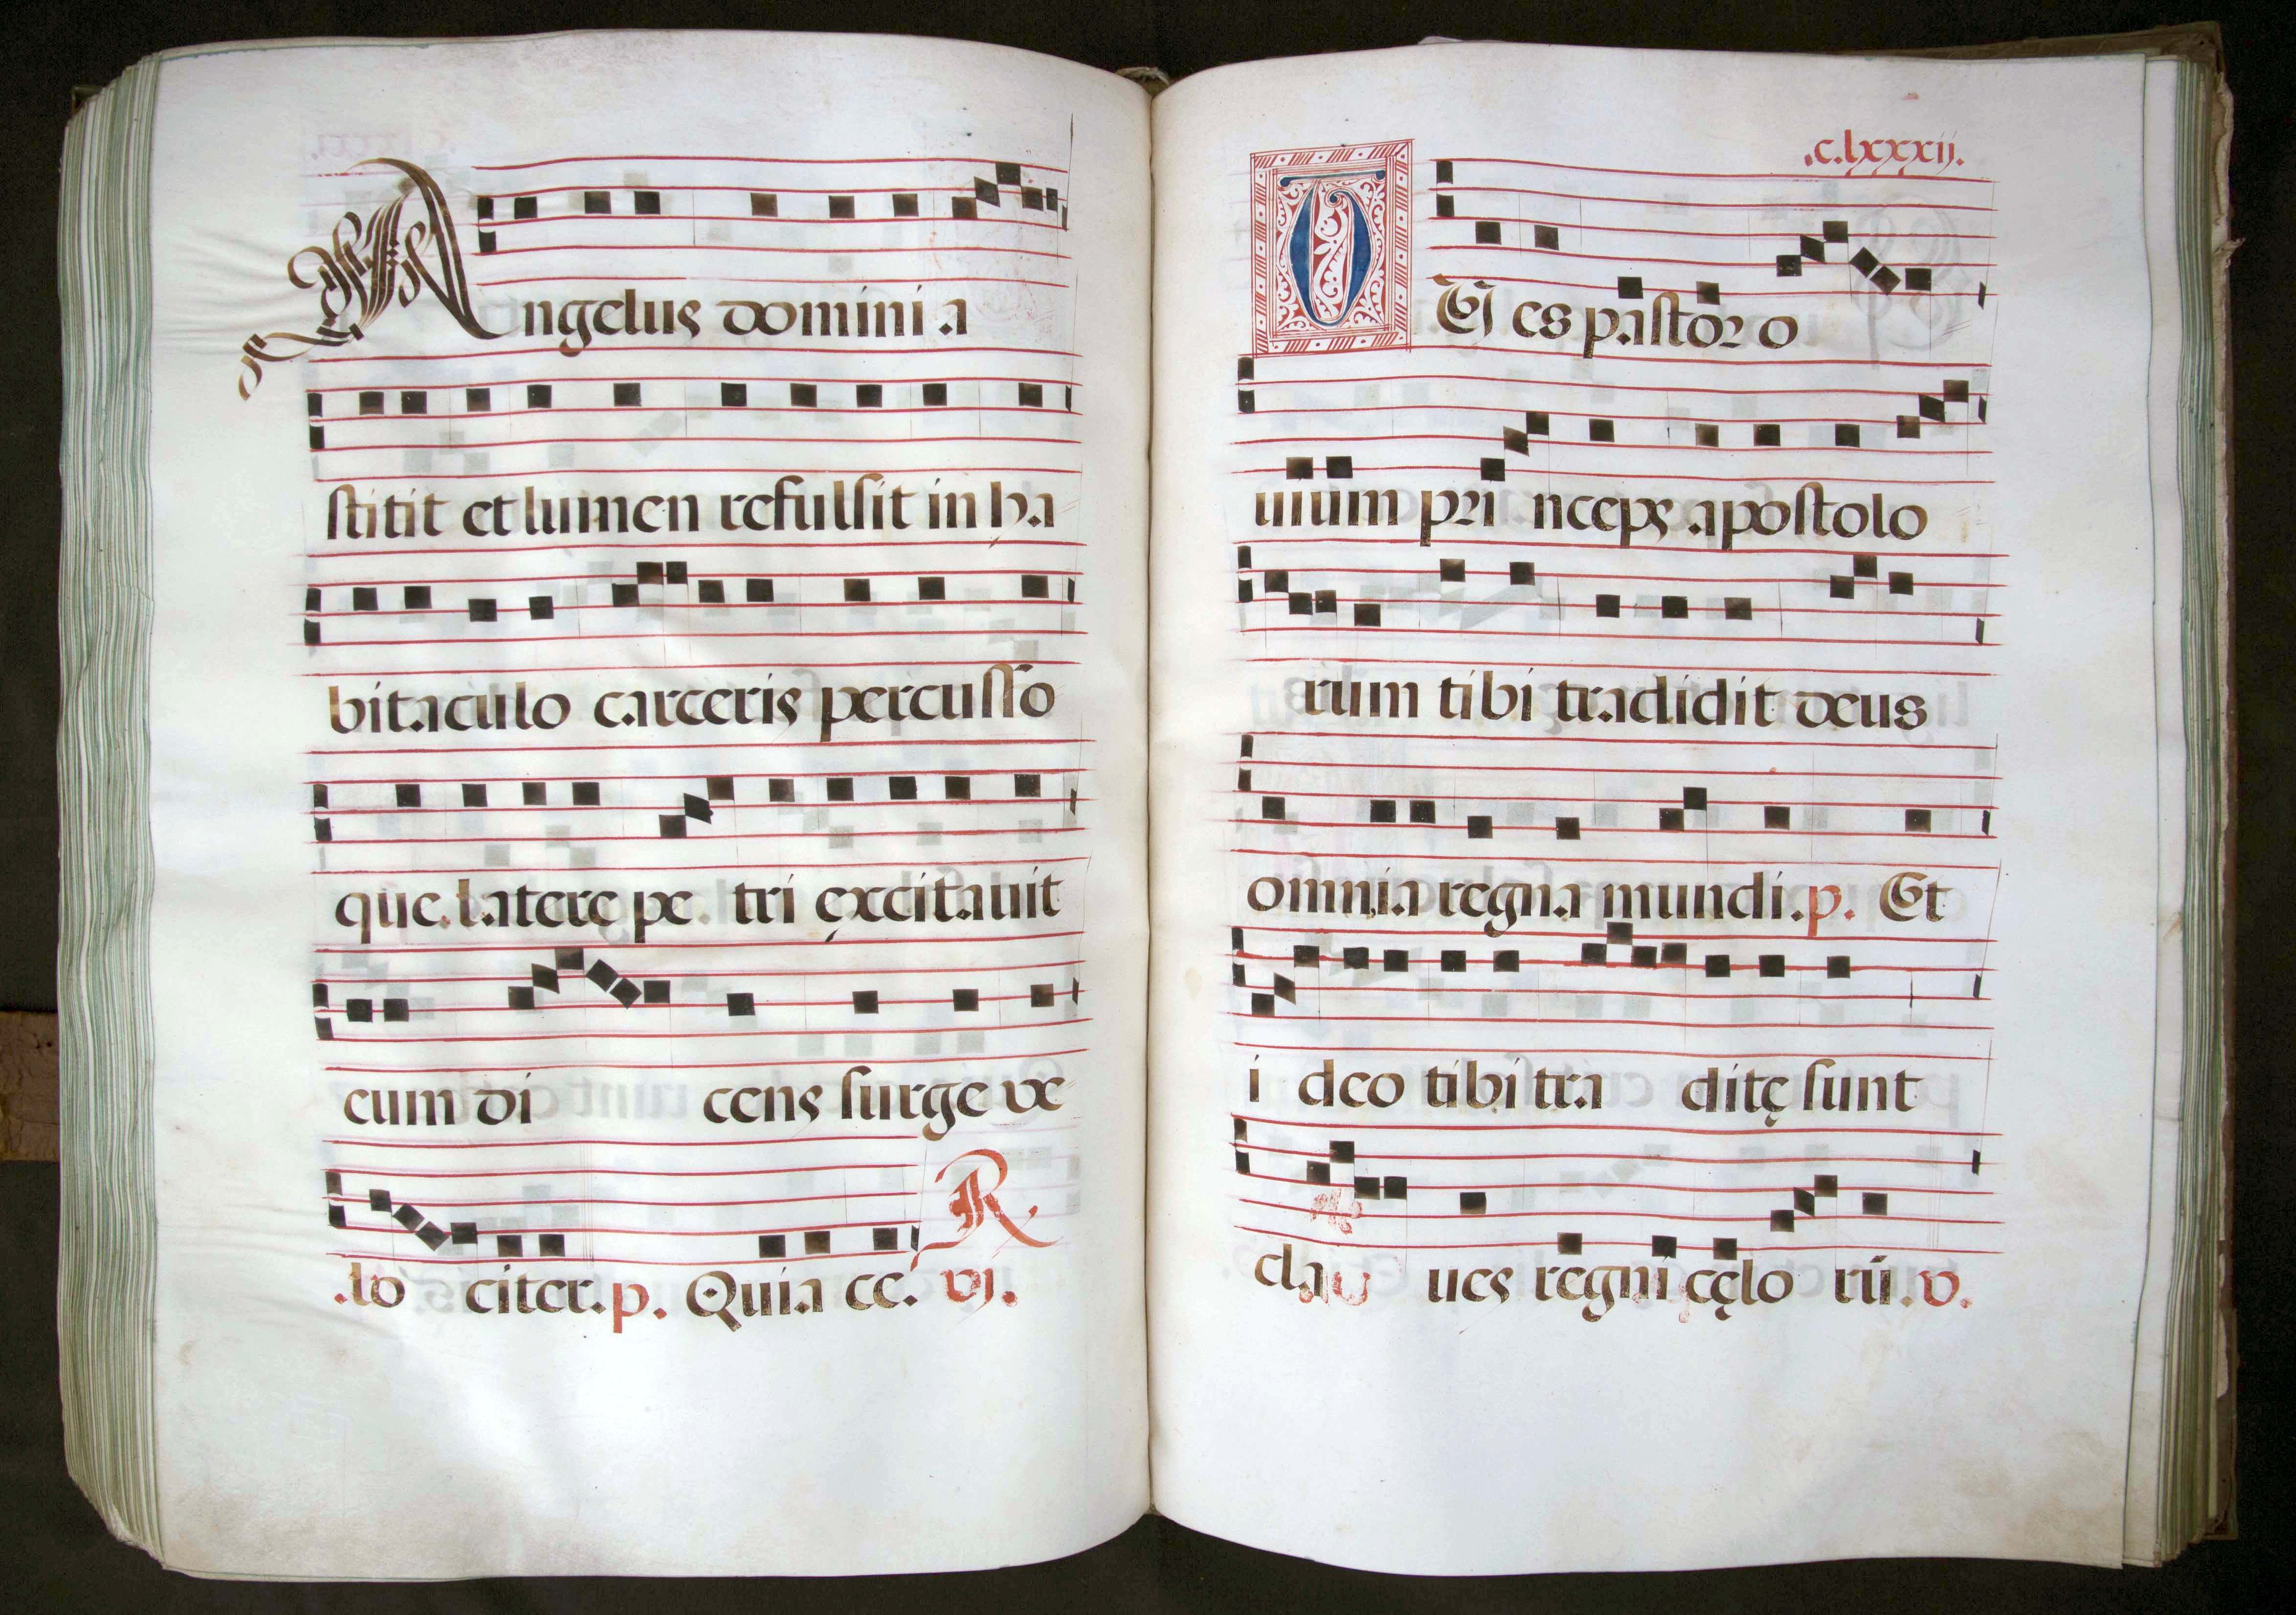 Angelus domini a
stitit et lumen refulsit in ha
bitaculo carceris percusso
que latere pe tri excitavit
eum di cens surge ve
lo citer. p. Quia ce. R. vi.
.c.lxxxij.
TU es pastor o
uium pri nceps aposto lo
rum tibi tradidit deus
omnia regna mundi. p. Et
i deo tibi tra ditę sunt
cla ues regni cęlo rū. v.